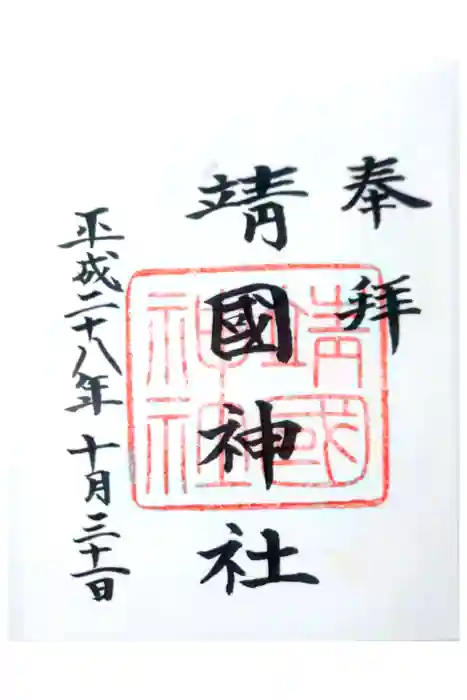 奉拝
靖國神社
靖國
神社
平成二十八年 十月三十一日